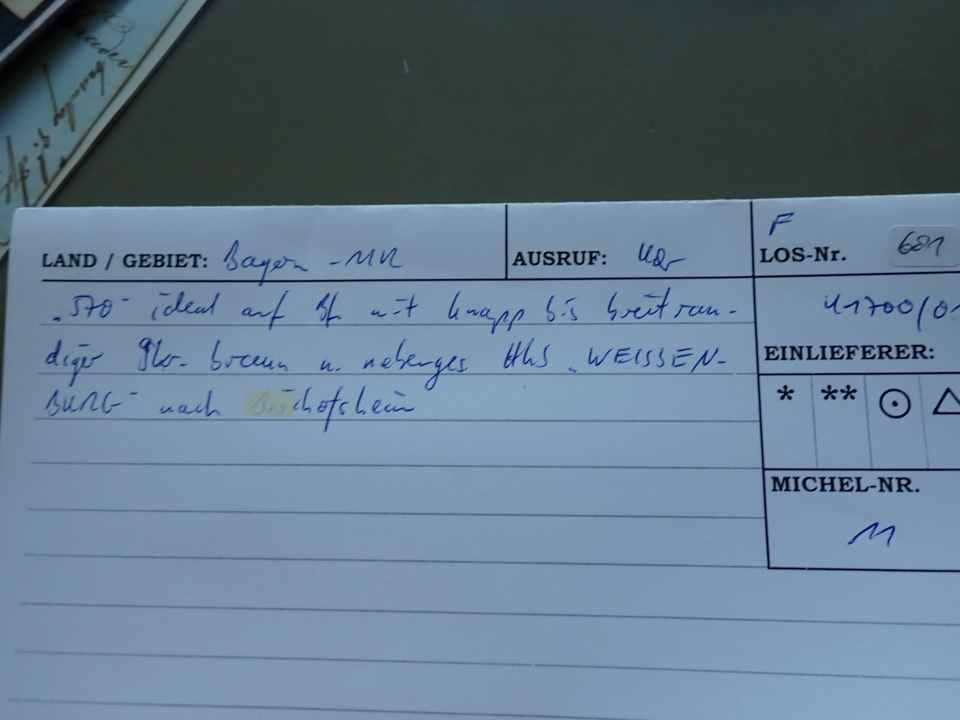 F
LAND / GEBIET: Bayern - MR
AUSRUF:
LOS-Nr. 601
„570" ideal auf Bf. mit knapp bis breitran-
41700/01
diger 9kr. braun u. nebenges. HkS „WEISSEN-
EINLIEFERER:
BURG" nach Bischofsheim
* **
MICHEL-NR.
11